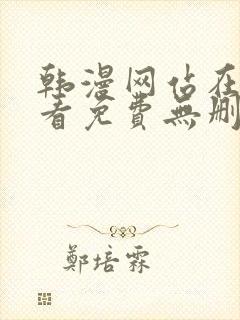 韩漫网站在
看免费無删
鄭培霖